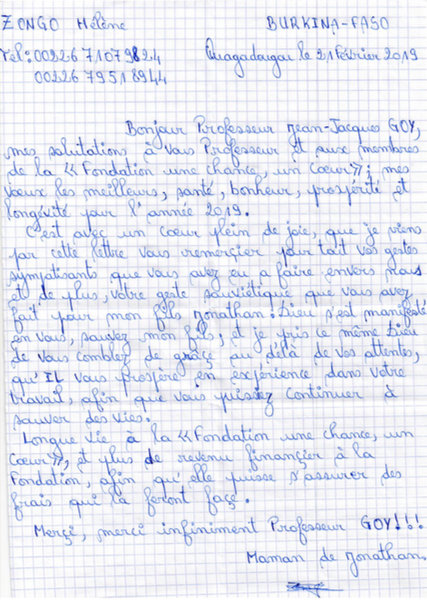 ZONGO Hélène BURKINA-FASO
Tel: 00226 71079824 Ouagadougou le 21 Février 2019
00226 79518944
Bonjour Professeur Jean-Jacques GOY,
mes salutations à vous Professeur et aux membres
de la « Fondation une chance, un Cœur » ; mes
vœux les meilleurs, santé, bonheur, prospérité et
longévité pour l'année 2019.
C'est avec un cœur plein de joie, que je viens
par cette lettre vous remerçier pour tout vos gestes
sympatisants que vous avez eu a faire envers nous
et de plus, votre geste que vous avez
fait pour mon fils Jonathan. Dieu s'est manifesté
en vous, sauvez mon fils, et je pris ce même Dieu
de vous comblez de grâçe au délà de vos attentes,
qu'Il vous prospère en expérience dans votre
travail, afin que vous puissiez continuer à
sauver des vies.
Longue vie à la « Fondation une chance, un
Cœur », et plus de revenu financier à la
Fondation, afin qu'elle puisse s'assurer des
frais qui la feront façe.
Merçi, merci infiniment Professeur GOY!!!
Maman de Jonathan.